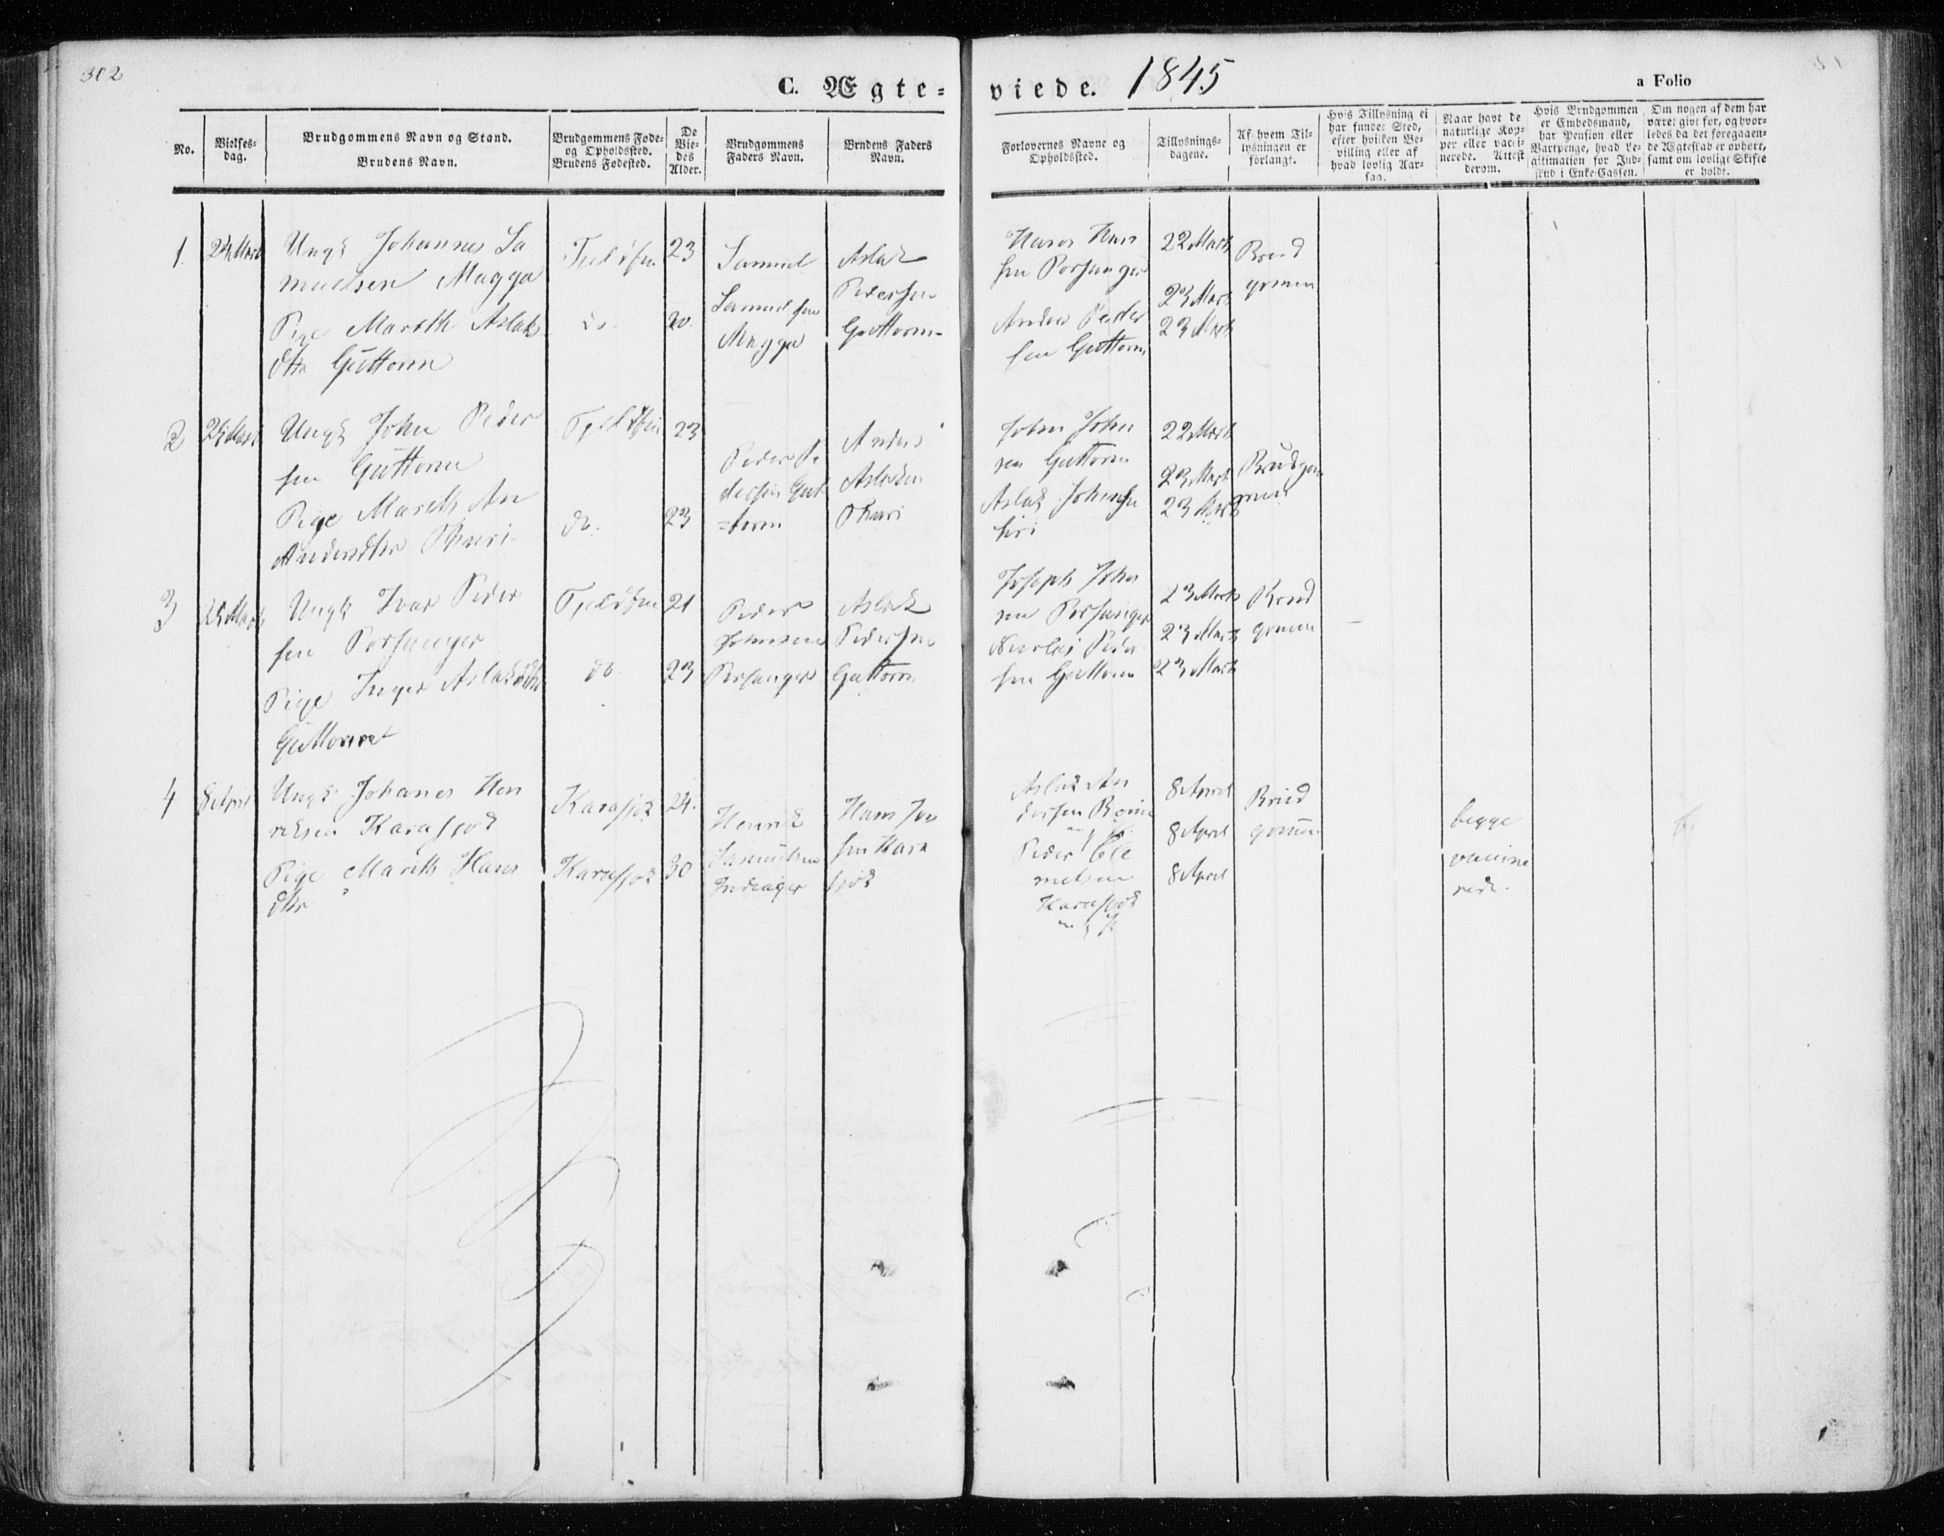 302
C. Ægte=
viede. 1845
a Folio
No.
Vielses-
dag.
Brudgommens Navn og Stand.
Brudens Navn.
Brudgommens Føde-
og Opholdssted.
Brudens Fødested.
De
Vie-
des
Alder.
Brudgommens
Faders Navn.
Brudens Faders
Navn.
Forlovernes Navne og
Opholdssted.
Tillysnings-
dagene.
Af hvem Til-
lysningen er
forlangt.
Hvis Tillysning ei
har fundet Sted,
efter hvilken Be-
villing eller af
hvad lovlig Aar-
sag.
Naar havt de
naturlige Kop-
per eller vacci-
nerede. Attest
derom.
Hvis Brudgommen
er Embedsmand,
har Pension eller
Vartpenge, hvad Le-
gitimation for Ind-
skud i Enke-Cassen.
Om nogen af dem har
været gift før, og hvor-
ledes da det foregaaen-
de Ægteskab er ophørt,
samt om lovligt Skifte
er holdt.
1.
24 Marts
Ungk Johannes Sa
muelsen Magga
Pige Marith Aslak
dtr Guttorm
do.
23
20.
Samuel
Samuelsen
Magga
Aslak
Pedersen
Guttorm
Hans Han
sen Porsanger
Anders Peder
sen Guttorm
22 Marts
23 Marts
23 Marts
Brud
gomen
2
25 Marts
Ungk John Peder
sen Guttorm
Pige Marith An
Andersdtr
do.
23
23
Peder Pe
dersen Gut
=torm
Anders
Aslaksen
John John
sen Guttorm
Aslak Johnsen
22 Marts
23 Marts
23 Marts
Brudgom
men
3
25 Marts
Ungk Ivar Peder
sen Porsanger
Pige Inger Aslaksdtr
Guttorm
do.
21
23
Peder
Johnsen
Porsanger
Aslak
Pedersen
Guttorm
Joseph John
sen Porsanger
Nicolai Peder
sen Guttorm
23 Marts
23 Marts
23 Marts
Brud
gomen
4
8 April
Ungk Johanes Hen
riksen Karasjok
Pige Marith Hans
dtr
Karasjok
Karasjok
24.
30
Henrik
Samuelsen
Hans Jon
sen Kara
sjok
Aslak An
dersen
Peder Cle
metsen
Karasjok
8 April
8 April
8 April
Brud
gomen
begge
vaccine
rede.